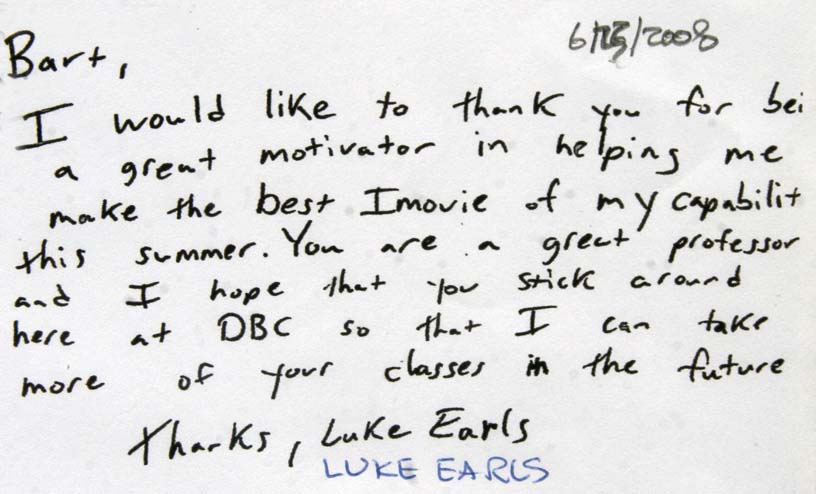 6/25/2008
Bart,
I would like to thank you for bei
a great motivator in helping me
make the best Imovie of my capabilit
this summer. You are a great professor
and I hope that you stick around
here at DBC so that I can take
more of your classes in the future
Thanks, Luke Earls
LUKE EARLS